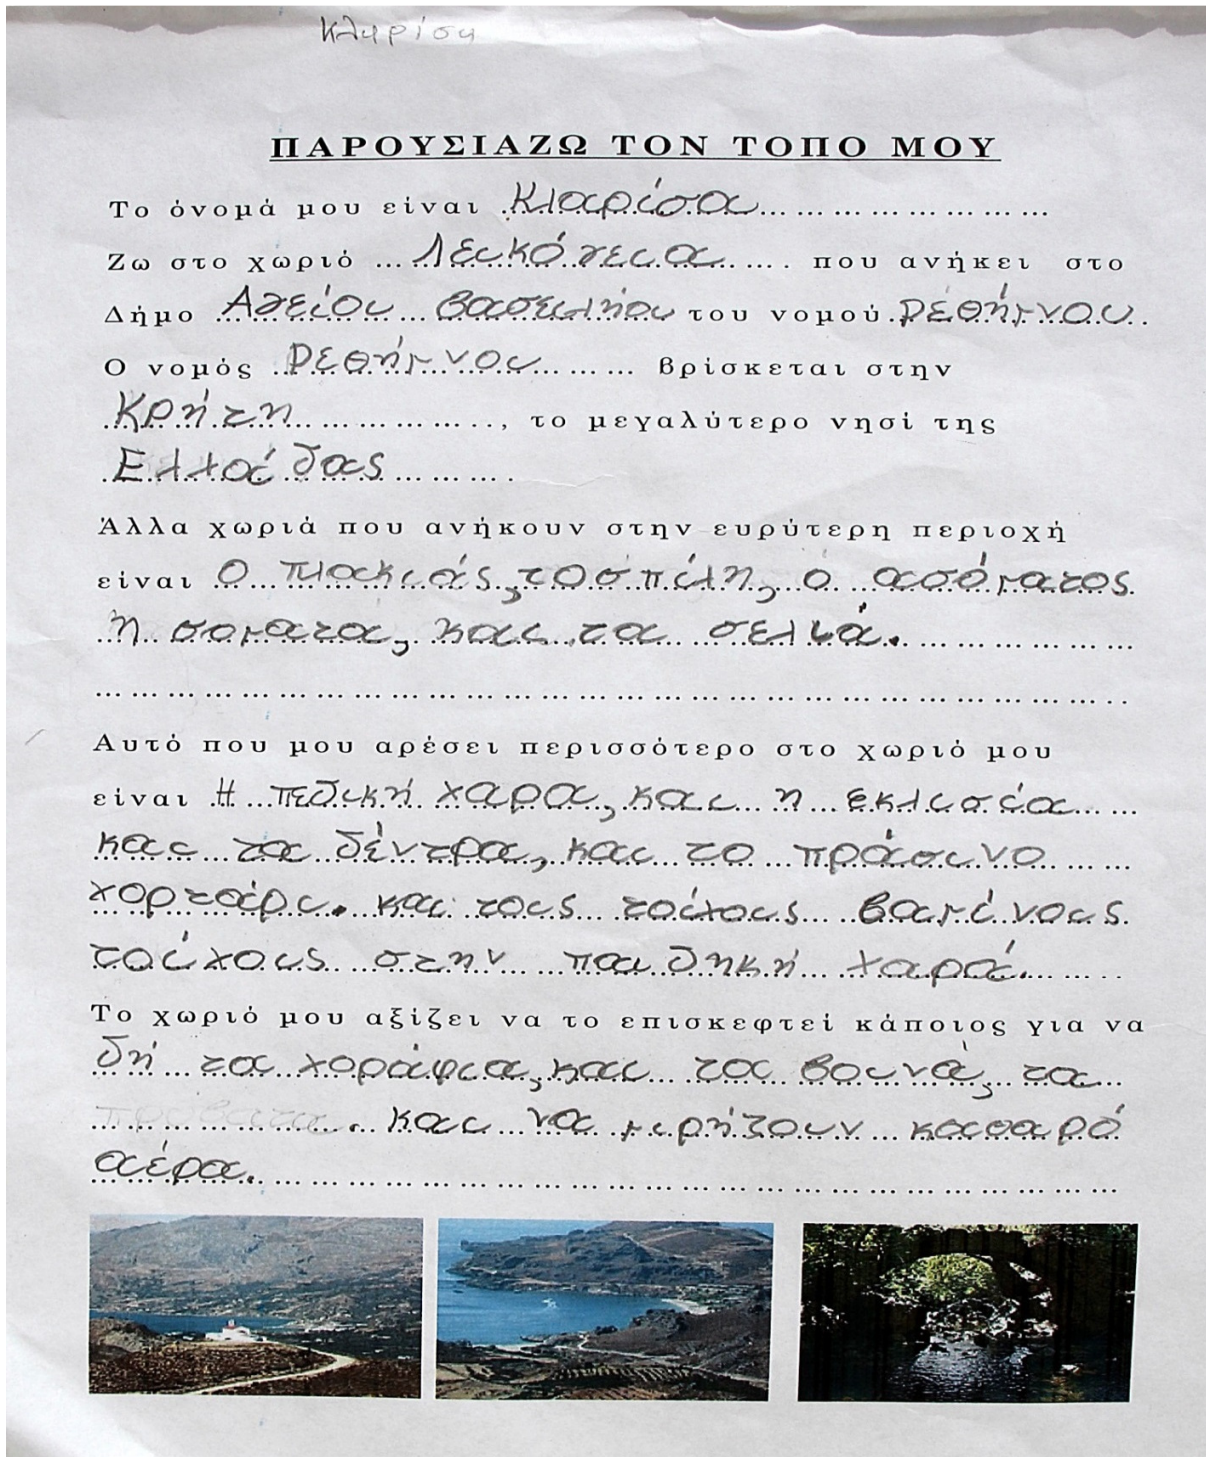 Κλαρίσα
ΠΑΡΟΥΣΙΑΖΩ ΤΟΝ ΤΟΠΟ ΜΟΥ
Το όνομά μου είναι Κλαρίσα
Ζω στο χωριό Λεικόγεια που ανήκει στο
Δήμο Αγείου βασειλήου του νομού ρεθήμνου.
Ο νομός Ρεθήμνου βρίσκεται στην
Κρήτη, το μεγαλύτερο νησί της
Ελλάδας.
Άλλα χωριά που ανήκουν στην ευρύτερη περιοχή
είναι Ο πλακιάς, τοσπίλη, ο ασόματος
η σοματα, και τα σελιά.
Αυτό που μου αρέσει περισσότερο στο χωριό μου
είναι Η πεδική χαρα, και η εκλισία
και τα δέντρα, και το πράσινο
χορτάρι. και τους τοίχους βαμένους
τοίχους στην παιδηκή χαρά.
Το χωριό μου αξίζει να το επισκεφτεί κάποιος για να
δή τα χοράφια, και τα βουνά, τα
προβατα. και να μιρήζουν καθαρό
αέρα.